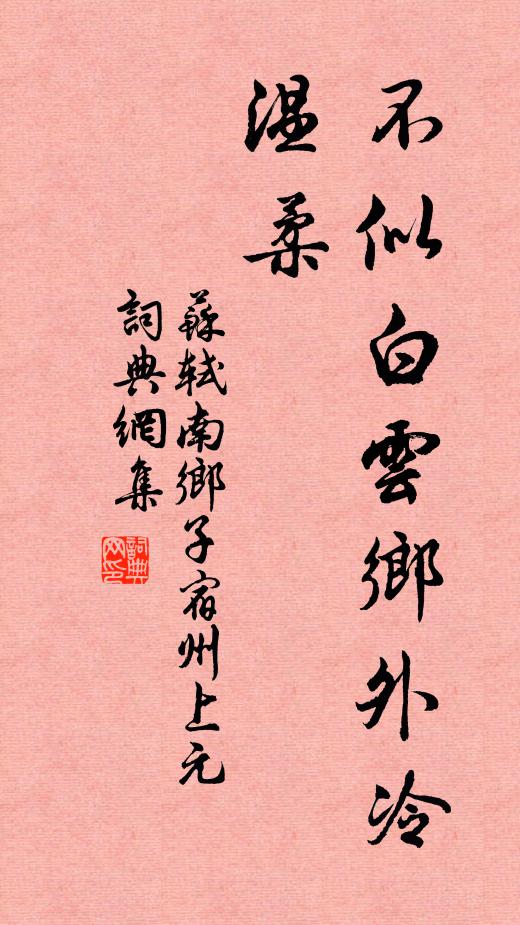 不似白雲鄉外冷
溫柔
蘇軾南鄉子宿州上元
詞典網集
詞典
网印